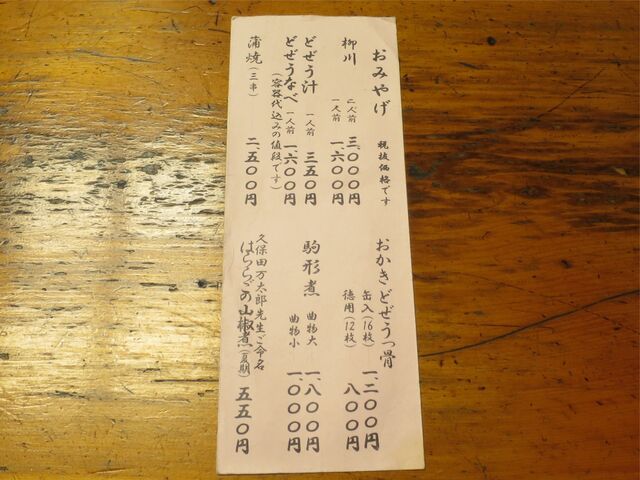 おみやげ 税抜価格です
柳川 二人前 三、〇〇〇円
一人前 一、六〇〇円
どぜう汁 一人前 三五〇円
どぜうなべ 一人前 一、六〇〇円
(容器代込みの値段です)
蒲焼(三串) 二、五〇〇円
おかきどぜうっ骨
缶入(16枚) 一、二〇〇円
徳用(12枚) 八〇〇円
駒形煮 曲物大 一、八〇〇円
曲物小 一、〇〇〇円
久保田万太郎先生ご命名
はららごの山椒煮(夏期) 五五〇円